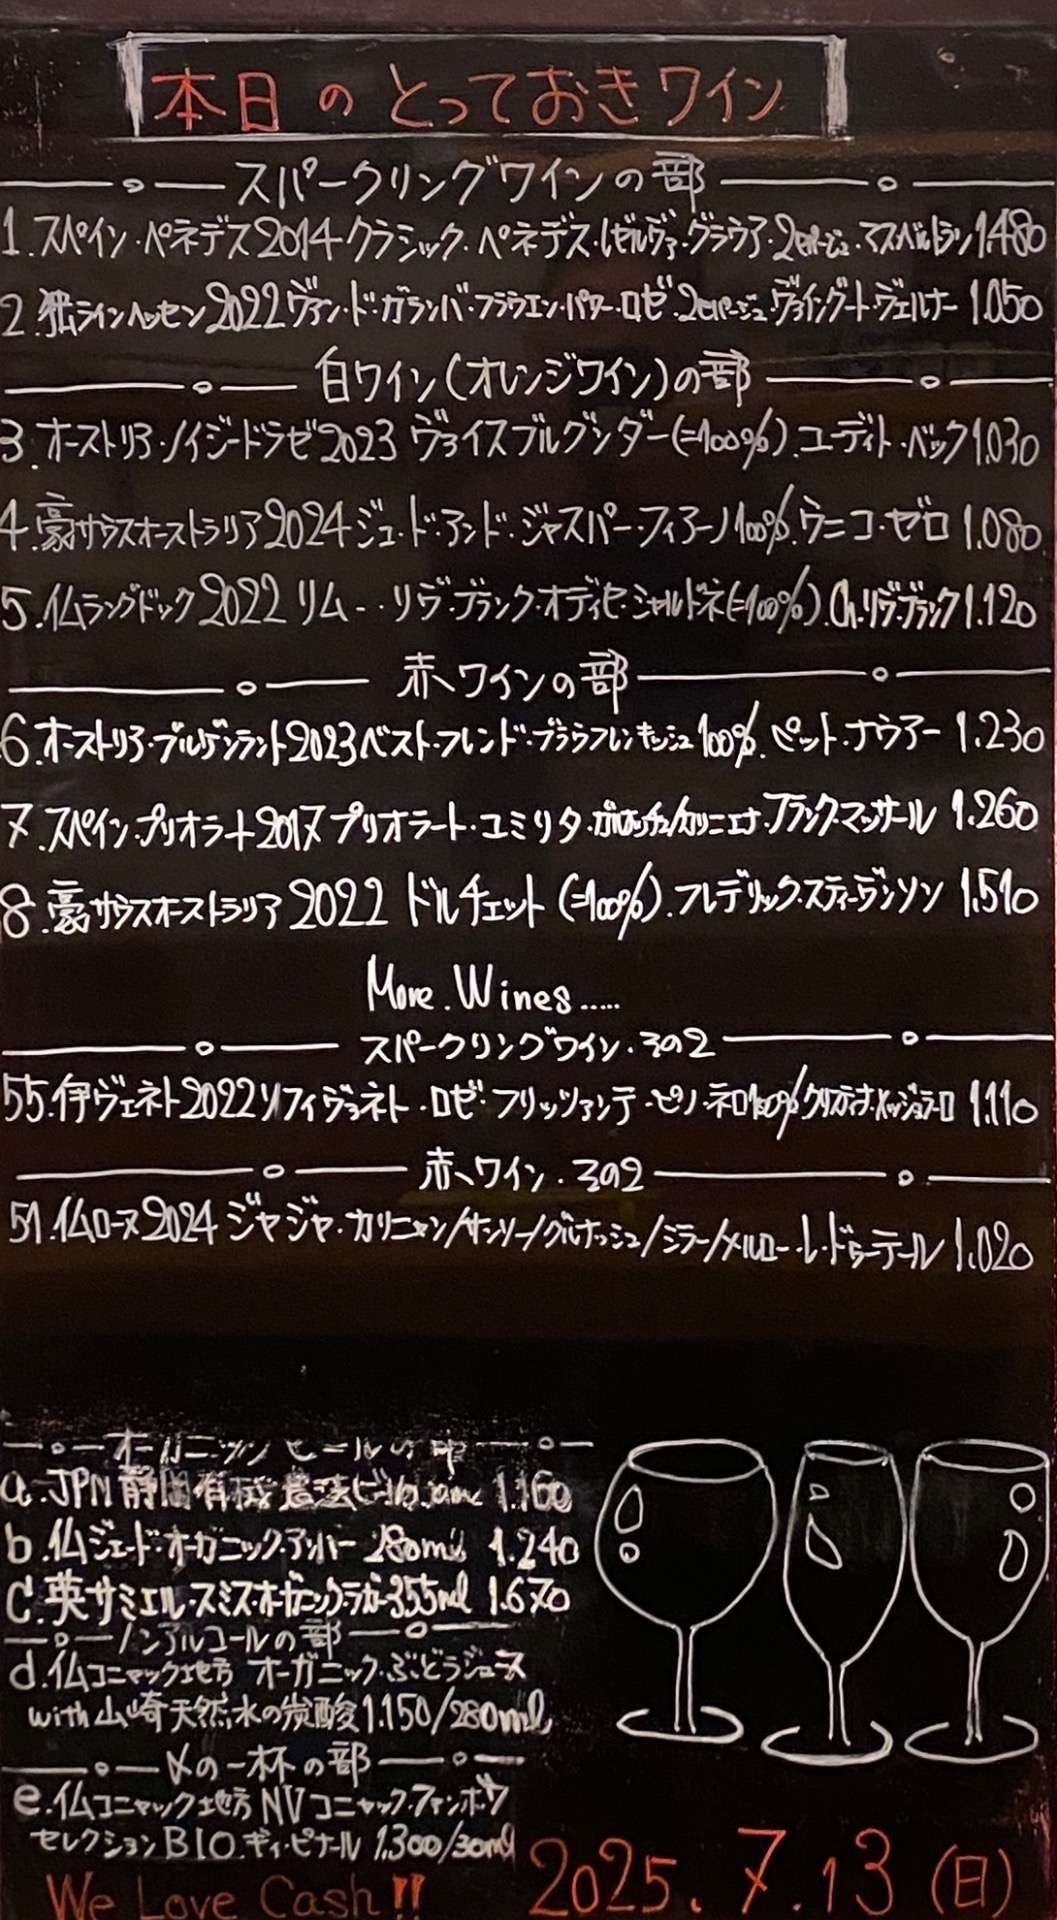 本日のとっておきワイン
スパークリングワインの部
1.スペイン・ペネデス2014クラシック・ペネデス・レゼルヴァ・グラウア・2セパージュ・マスベルトラン1.480
2.独ラインヘッセン2022ヴァン・ド・ガランバ・フラウエン・パワー・ロゼ・2セパージュ・ヴァイングート・ヴェルナー1.050
白ワイン(オレンジワイン)の部
3.オーストリア・ノイジードラゼ2023ヴァイスブルグンダー(=100%).ユーディト・ベック1.030
4.豪サウスオーストラリア2024ジュ・ド・アンド・ジャスパー・フィアーノ100%.ウニコ・ゼロ1.080
5.仏ラングドック2022リム・・リヴ・ブランク・オディセ・シャルドネ(=100%).Ch.リヴ・ブランク1.120
赤ワインの部
6.オーストリア・ブルゲンラント2023ベスト・フレンド・ブラウフレンキッシュ100%.ピット・ナウアー1.230
7.スペイン.プリオラート2017プリオラート・ユミリタ・ガルナッチャ/カリニェナ・フランク・マッサール1.260
8.豪サウスオーストラリア2022ドルチェット(=100%).フレデリック・スティーヴンソン1.510
More.Wines.....
スパークリングワイン.その2
55.伊ヴェネト2022ソフィヴァネト・ロゼ・フリッツァンテ・ピノ・ネロ100%クリスティナ・メッジョラーロ1.110
赤ワイン.その2
51.仏ローヌ2024ジャジャ・カリニャン/サンソー/グルナッシュ/シラー/メルロー・レ・ドゥーテール1.020
オーガニックビールの部
a.JPN静岡有機農法ビール 1.160
b.仏ジェード・オーガニック・アンバー280ml 1.240
C.英サミエル・スミス・オーガニック・ラガー355ml 1.670
ノンアルコールの部
d.仏コニャック地方 オーガニック・ぶどうジュース
with山崎天然水の炭酸1.150/280ml
〆の一杯の部
e.仏コニャック地方NVコニャック・ファンボワ
セレクションBIO.ギィ・ピナール1,300/30ml
We Love Cash!!
2025.7.13(日)